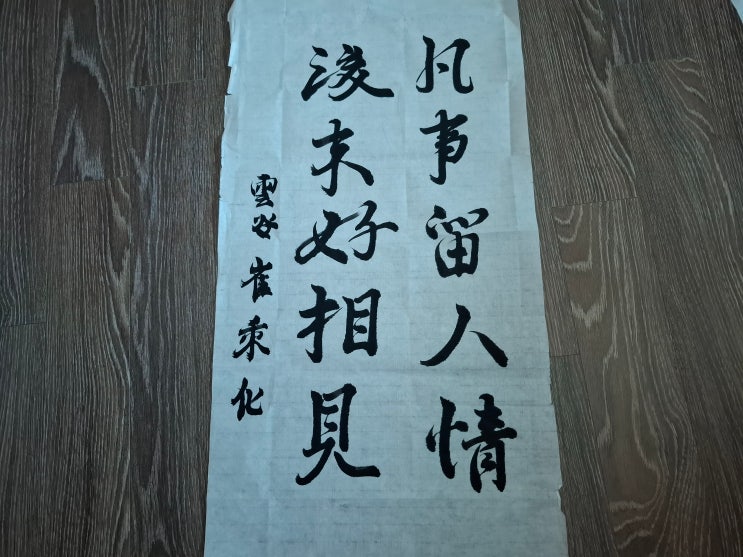 凡事留人情
後来好相見
雲谷 崔秉化